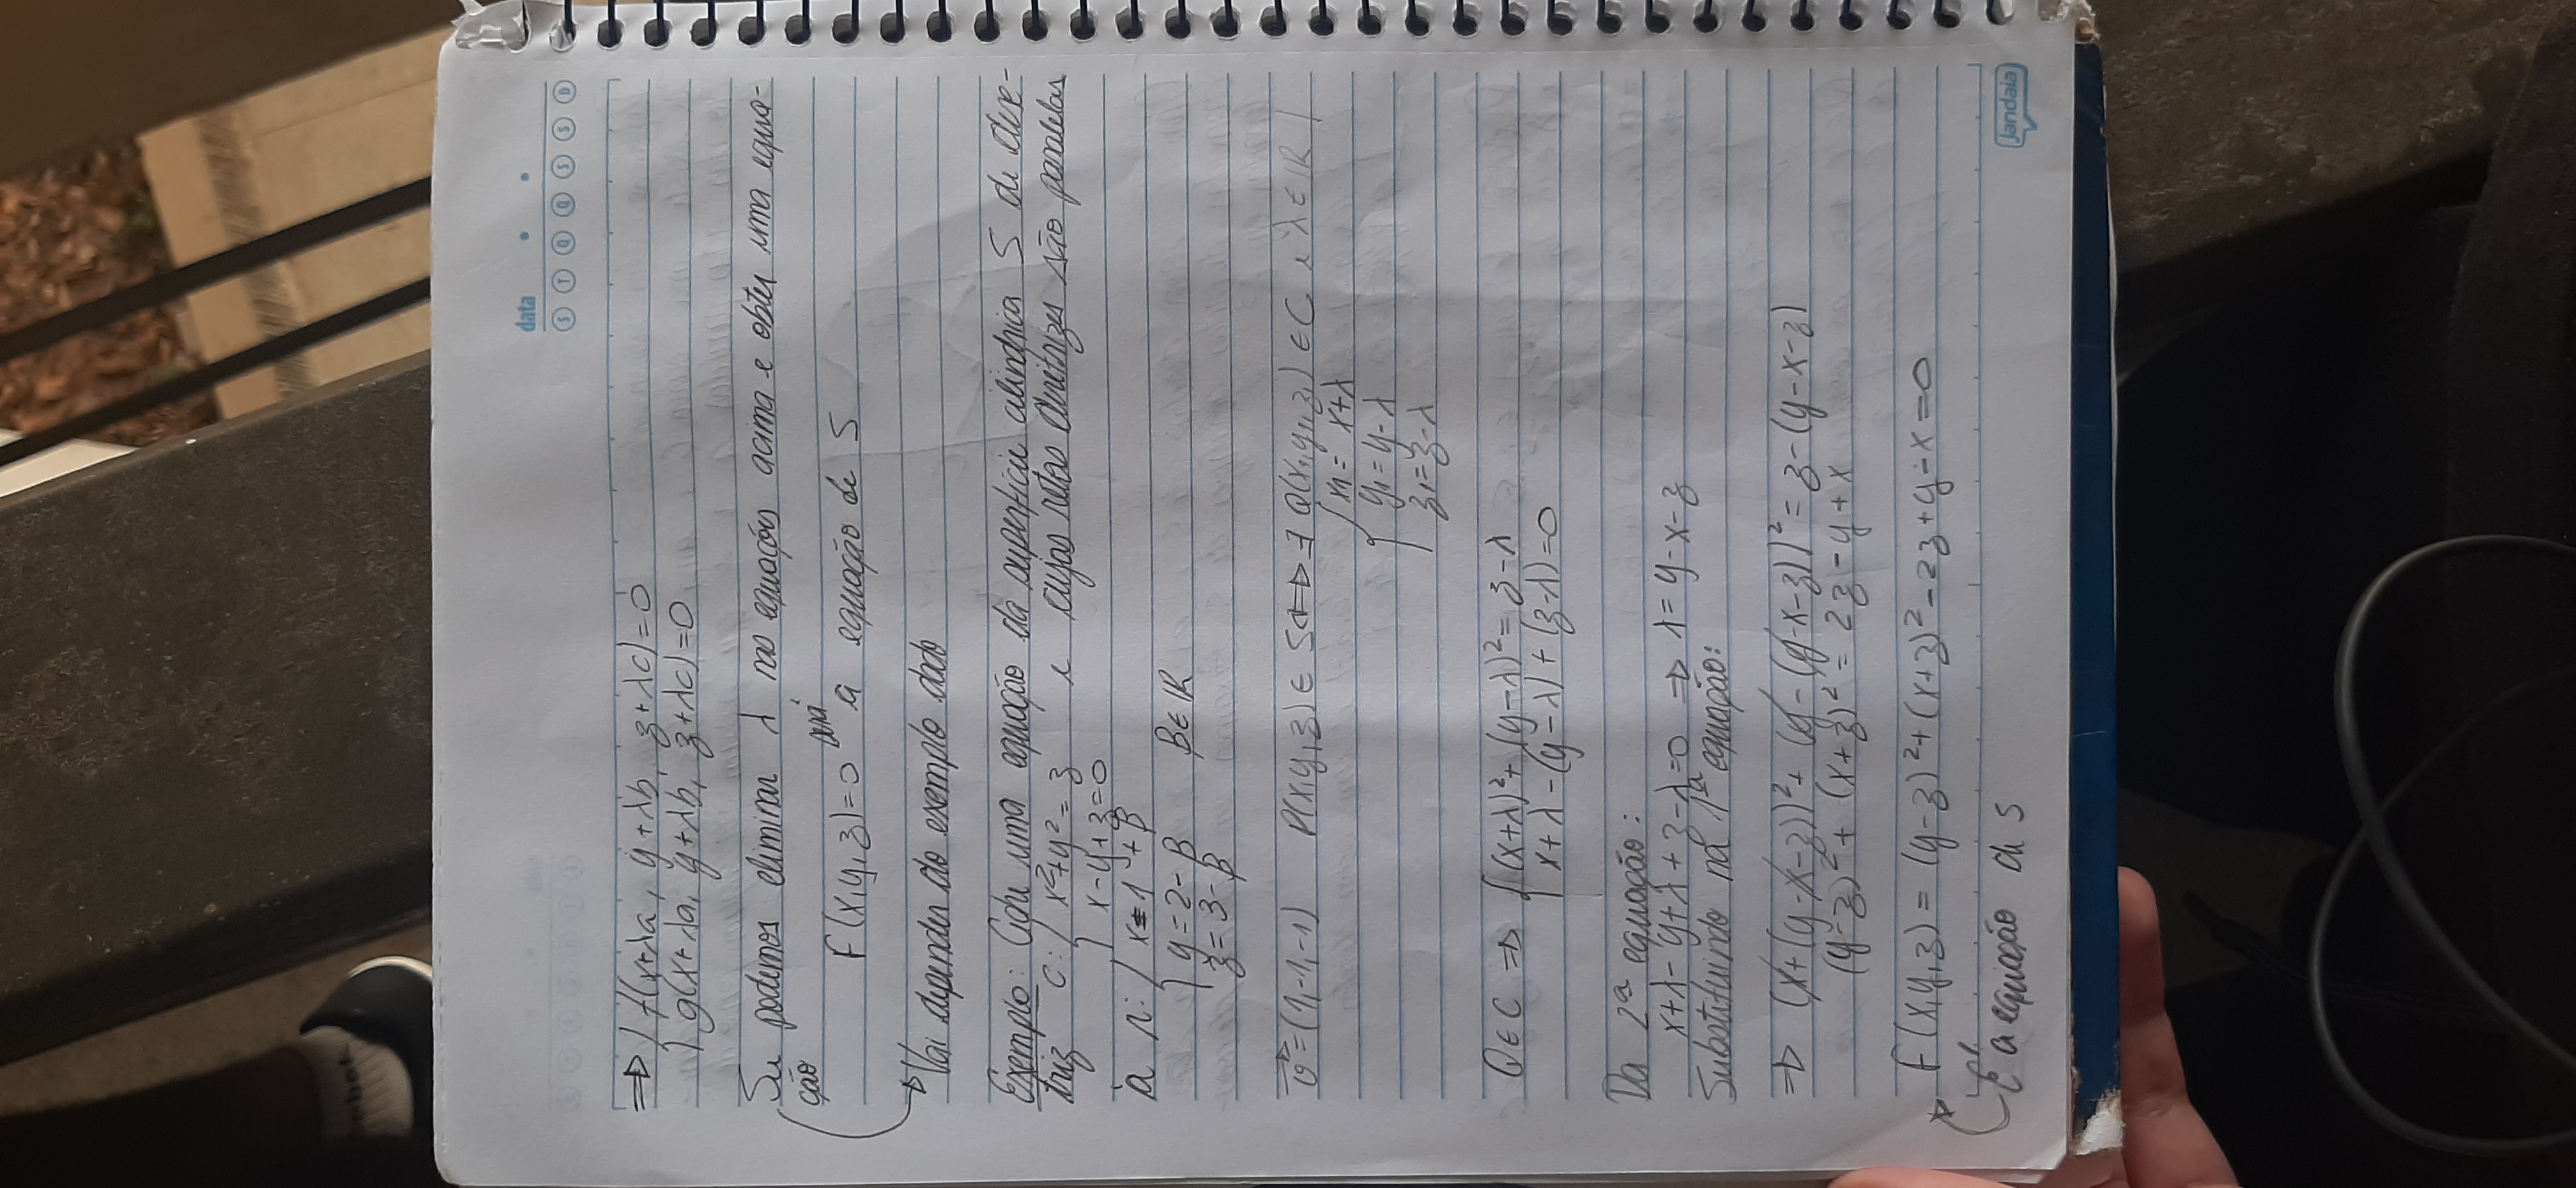 data
S T Q Q S S D
⇒ { f(x+λa, y+λb, z+λc)=0
{ g(x+λa, y+λb, z+λc)=0
Se podemos eliminar λ nas equações acima e obter uma equa-
ção
F(x,y,z)=0 será a equação de S
Vai depender do exemplo dado
Exemplo: Ache uma equação da superfície cilíndrica S de dire-
triz C: { x²+y²=z e cujas retas diretrizes são paralelas
{ x-y+z=0
à r: { x=1+β
{ y=2-β β∈ℝ
z=3-β
v⃗=(1,-1,-1) P(x,y,z)∈S⇔∃ Q(x₁,y₁,z₁)∈C e λ∈ℝ |
{ x1=x+λ
{ y₁=y-λ
z₁=z-λ
Q∈C ⇒ { (x+λ)²+(y-λ)²=z-λ
{ x+λ-(y-λ)+(z-λ)=0
Da 2ª equação:
x+λ-y+λ+z-λ=0 ⇒ λ=y-x-z
Substituindo na 1ª equação:
⇒ (x+(y-x-z))²+(y-(y-x-z))²=z-(y-x-z)
(y-z)²+(x+z)²=2z-y+x
F(x,y,z)=(y-z)²+(x+z)²-2z+y-x=0
É a equação de S
jandaia